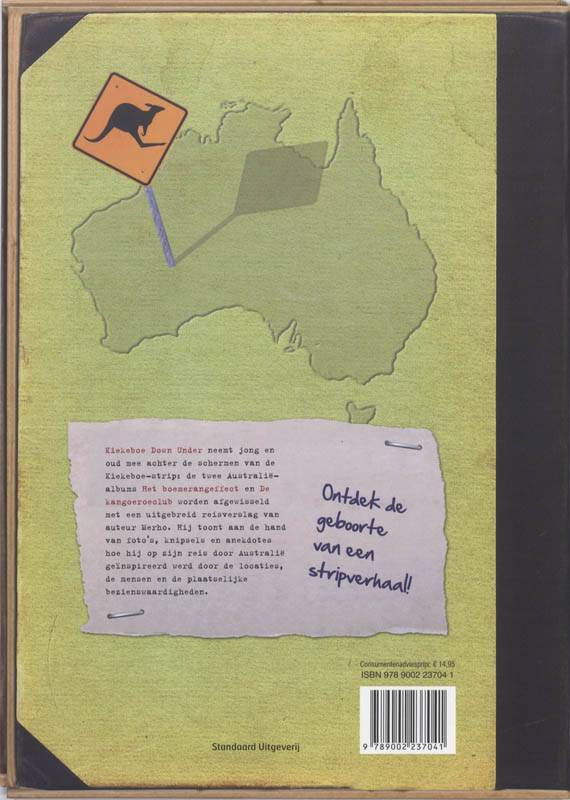 Kiekeboe Down Under neemt jong en
oud mee achter de schermen van de
Kiekeboe-strip: de twee Australië-
albums Het boemerangeffect en De
kangoeroeclub worden afgewisseld
met een uitgebreid reisverslag van
auteur Merho. Hij toont aan de hand
van foto's, knipsels en anekdotes
hoe hij op zijn reis door Australië
geïnspireerd werd door de locaties,
de mensen en de plaatselijke
bezienswaardigheden.
Ontdek de
geboorte
van een
stripverhaal!
Consumentenadviesprijs: € 14,95
ISBN 978 9002 23704 1
9 789002 237041
Standaard Uitgeverij